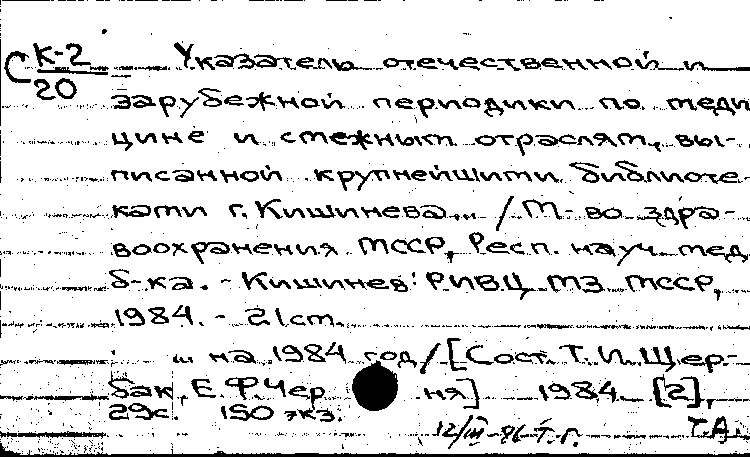 С К-2/20 Указатель отечественной и
зарубежной периодики по меди
цине и смежным отраслям, вы-
писанной крупнейшими библиоте-
ками г. Кишинева... / М-во здра-
воохранения МССР, Респ. науч. мед
б-ка. - Кишинев: РИВЦ МЗ МССР,
1984. - 21см.
... на 1984 год / [Сост. Т. И. Щер-
бак, Е. Ф. Чер ня] 1984 [2],
29с. 150 экз.
12/III-86 Т. Г. Т.А.